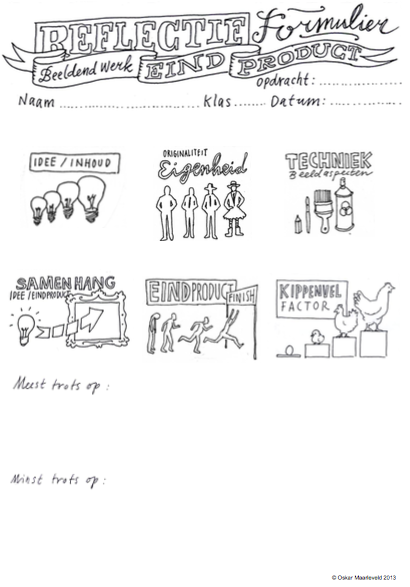 REFLECTIE Formulier
Beeldend Werk EIND PRODUCT
opdracht: ................
Naam ................................ Klas ........ Datum: ................
IDEE / INHOUD
ORIGINALITEIT
Eigenheid
TECHNIEK
Beeldaspecten
SAMENHANG
IDEE / EINDPRODUCT
EINDPRODUCT
FINISH
KIPPENVEL
FACTOR
Meest trots op :
Minst trots op :
© Oskar Maarleveld 2013